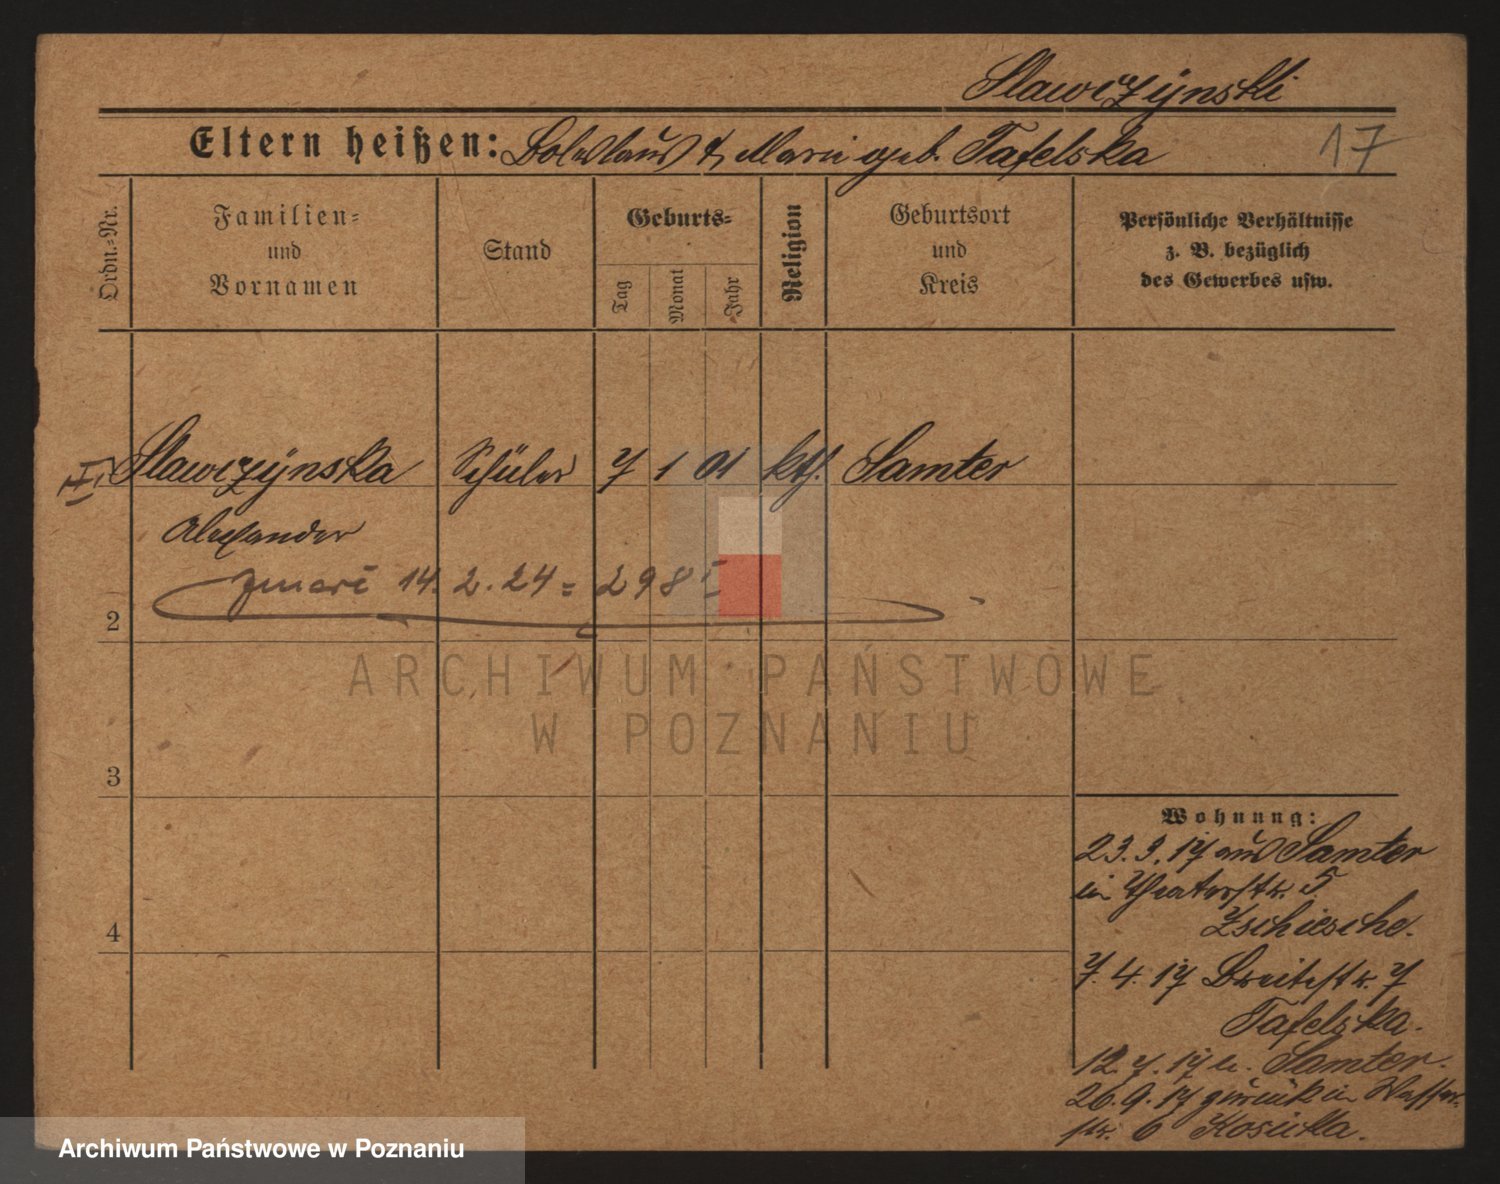 Slawczÿnski
Eltern heißen: Boleslaus & Marie geb. Tafelska
17
Ordn.-Nr.
Familien-
und
Vornamen
Stand
Geburts-
Tag
Monat
Jahr
Religion
Geburtsort
und
Kreis
Persönliche Verhältnisse
z. B. bezüglich
des Gewerbes usw.
Slawczÿnska Schüler 7 1 01 kth. Samter
Alexander
zmarł 14. 2. 24 = 298
2
ARCHIWUM PAŃSTWOWE
W POZNANIU
3
Wohnung:
23. 3. 17 aus Samter
in Theaterstr. 5
Zschiesche.
4
7. 4. 17 Breitestr. 7
Tafelska.
12. 7. 17 n. Samter.
26. 9. 17 zurück in Wasser-
str. 6
Archiwum Państwowe w Poznaniu